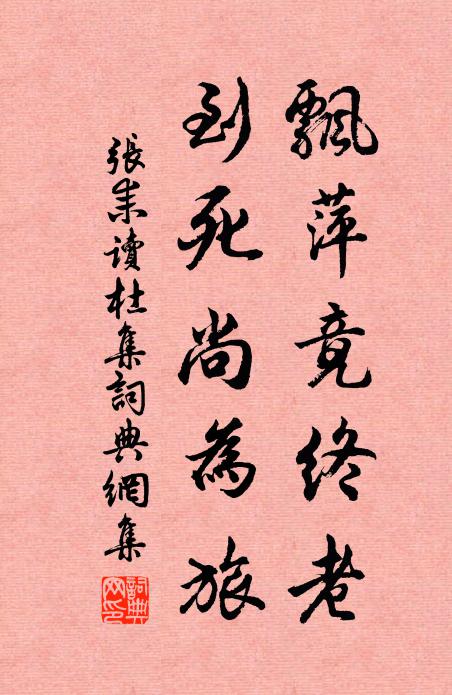 飄萍竟終老
到死尚為旅
張耒讀杜集詞典網集
詞典網印